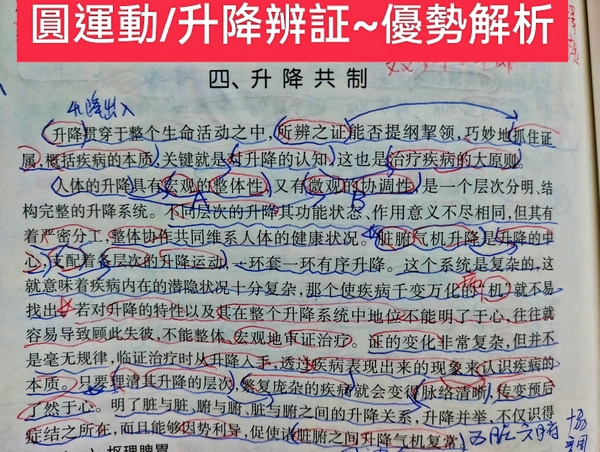 圓運動/升降辨証~優勢解析
四、升降共制
升降出入
升降贯穿于整个生命活动之中,所辨之证能否提纲挈领,巧妙地抓住证
属,概括疾病的本质,关键就是对升降的认知,这也是治疗疾病的大原则。
人体的升降具有宏观的整体性,又有微观的协调性,是一个层次分明、结
构完整的升降系统。不同层次的升降其功能状态、作用意义不尽相同,但其有
着严密分工,整体协作共同维系人体的健康状况。脏腑气机升降是升降的中
心,支配着各层次的升降运动,一环套一环有序升降。这个系统是复杂的,这
就意味着疾病内在的潜隐状况十分复杂,那个使疾病千变万化的“机”就不易
找出。若对升降的特性以及其在整个升降系统中地位不能明了于心,往往就
容易导致顾此失彼,不能整体、宏观地审证治疗。证的变化非常复杂,但并不
是毫无规律,临证治疗时从升降入手,透过疾病表现出来的现象来认识疾病的
本质。只要理清其升降的层次,繁复庞杂的疾病就会变得脉络清晰,传变预后
了然于心。明了脏与脏、腑与腑、脏与腑之间的升降关系,升降并举,不仅识得
症结之所在,而且能够因势利导,促使诸脏腑之间升降气机复常。
五脏六腑
A
B